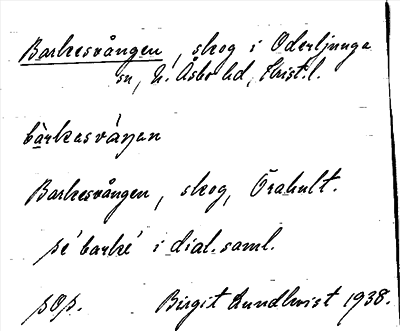 Barkesvången, skog i Oderljunga
sn, N. Åsbo hd, Krist. l.
bàrkasváŋan
Barkesvången, skog, Örahult.
pé barké i dial. saml.
pop. Birgit Lundkvist 1938.